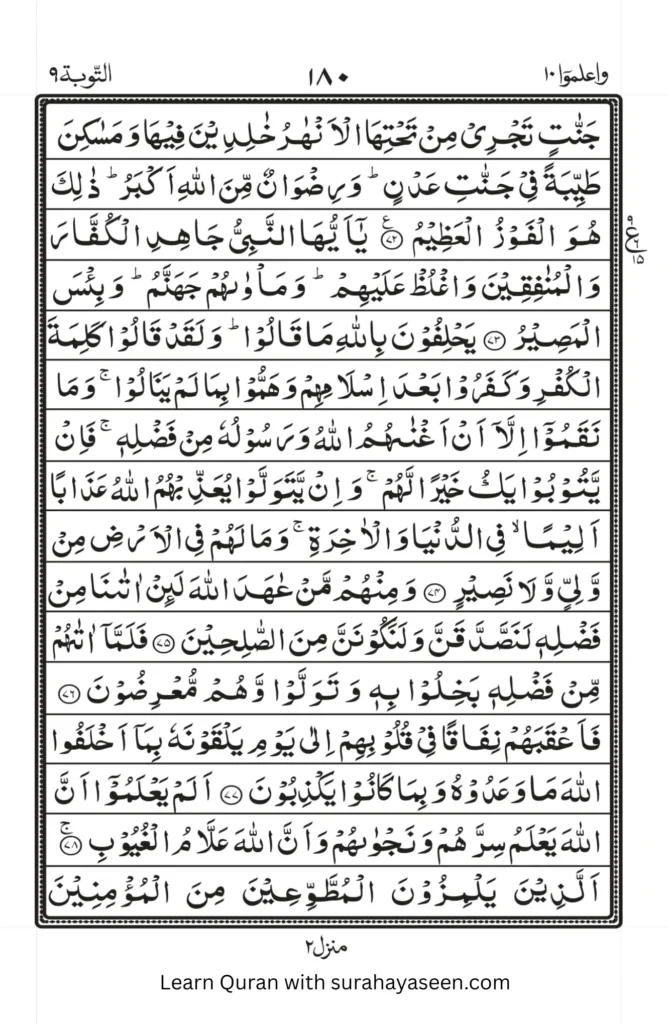 واعلموا ١٠ ١٨٠ التّوبة ٩
جَنّٰتٍ تَجْرِیْ مِنْ تَحْتِهَا الْاَنْهٰرُ خٰلِدِیْنَ فِیْهَا وَ مَسٰكِنَ
طَیِّبَةً فِیْ جَنّٰتِ عَدْنٍ ؕ وَ رِضْوَانٌ مِّنَ اللّٰهِ اَكْبَرُ ؕ ذٰلِكَ
هُوَ الْفَوْزُ الْعَظِیْمُ ﴿۷۲﴾ع یٰۤاَیُّهَا النَّبِیُّ جَاهِدِ الْكُفَّارَ
وَ الْمُنٰفِقِیْنَ وَ اغْلُظْ عَلَیْهِمْ ؕ وَ مَاْوٰىهُمْ جَهَنَّمُ ؕ وَ بِئْسَ
الْمَصِیْرُ ﴿۷۳﴾ یَحْلِفُوْنَ بِاللّٰهِ مَا قَالُوْا ؕ وَ لَقَدْ قَالُوْا كَلِمَةَ
الْكُفْرِ وَ كَفَرُوْا بَعْدَ اِسْلَامِهِمْ وَ هَمُّوْا بِمَا لَمْ یَنَالُوْا ۚ وَ مَا
نَقَمُوْۤا اِلَّاۤ اَنْ اَغْنٰىهُمُ اللّٰهُ وَ رَسُوْلُهٗ مِنْ فَضْلِهٖ ۚ فَاِنْ
یَّتُوْبُوْا یَكُ خَیْرًا لَّهُمْ ۚ وَ اِنْ یَّتَوَلَّوْا یُعَذِّبْهُمُ اللّٰهُ عَذَابًا
اَلِیْمًا ۙ فِی الدُّنْیَا وَ الْاٰخِرَةِ ۚ وَ مَا لَهُمْ فِی الْاَرْضِ مِنْ
وَّلِیٍّ وَّ لَا نَصِیْرٍ ﴿۷۴﴾ وَ مِنْهُمْ مَّنْ عٰهَدَ اللّٰهَ لَىِٕنْ اٰتٰىنَا مِنْ
فَضْلِهٖ لَنَصَّدَّقَنَّ وَ لَنَكُوْنَنَّ مِنَ الصّٰلِحِیْنَ ﴿۷۵﴾ فَلَمَّاۤ اٰتٰىهُمْ
مِّنْ فَضْلِهٖ بَخِلُوْا بِهٖ وَ تَوَلَّوْا وَّ هُمْ مُّعْرِضُوْنَ ﴿۷۶﴾
فَاَعْقَبَهُمْ نِفَاقًا فِیْ قُلُوْبِهِمْ اِلٰى یَوْمِ یَلْقَوْنَهٗ بِمَاۤ اَخْلَفُوا
اللّٰهَ مَا وَعَدُوْهُ وَ بِمَا كَانُوْا یَكْذِبُوْنَ ﴿۷۷﴾ اَلَمْ یَعْلَمُوْۤا اَنَّ
اللّٰهَ یَعْلَمُ سِرَّهُمْ وَ نَجْوٰىهُمْ وَ اَنَّ اللّٰهَ عَلَّامُ الْغُیُوْبِ ﴿۷۸﴾ۚ
اَلَّذِیْنَ یَلْمِزُوْنَ الْمُطَّوِّعِیْنَ مِنَ الْمُؤْمِنِیْنَ
منزل ٢
Learn Quran with surahayaseen.com